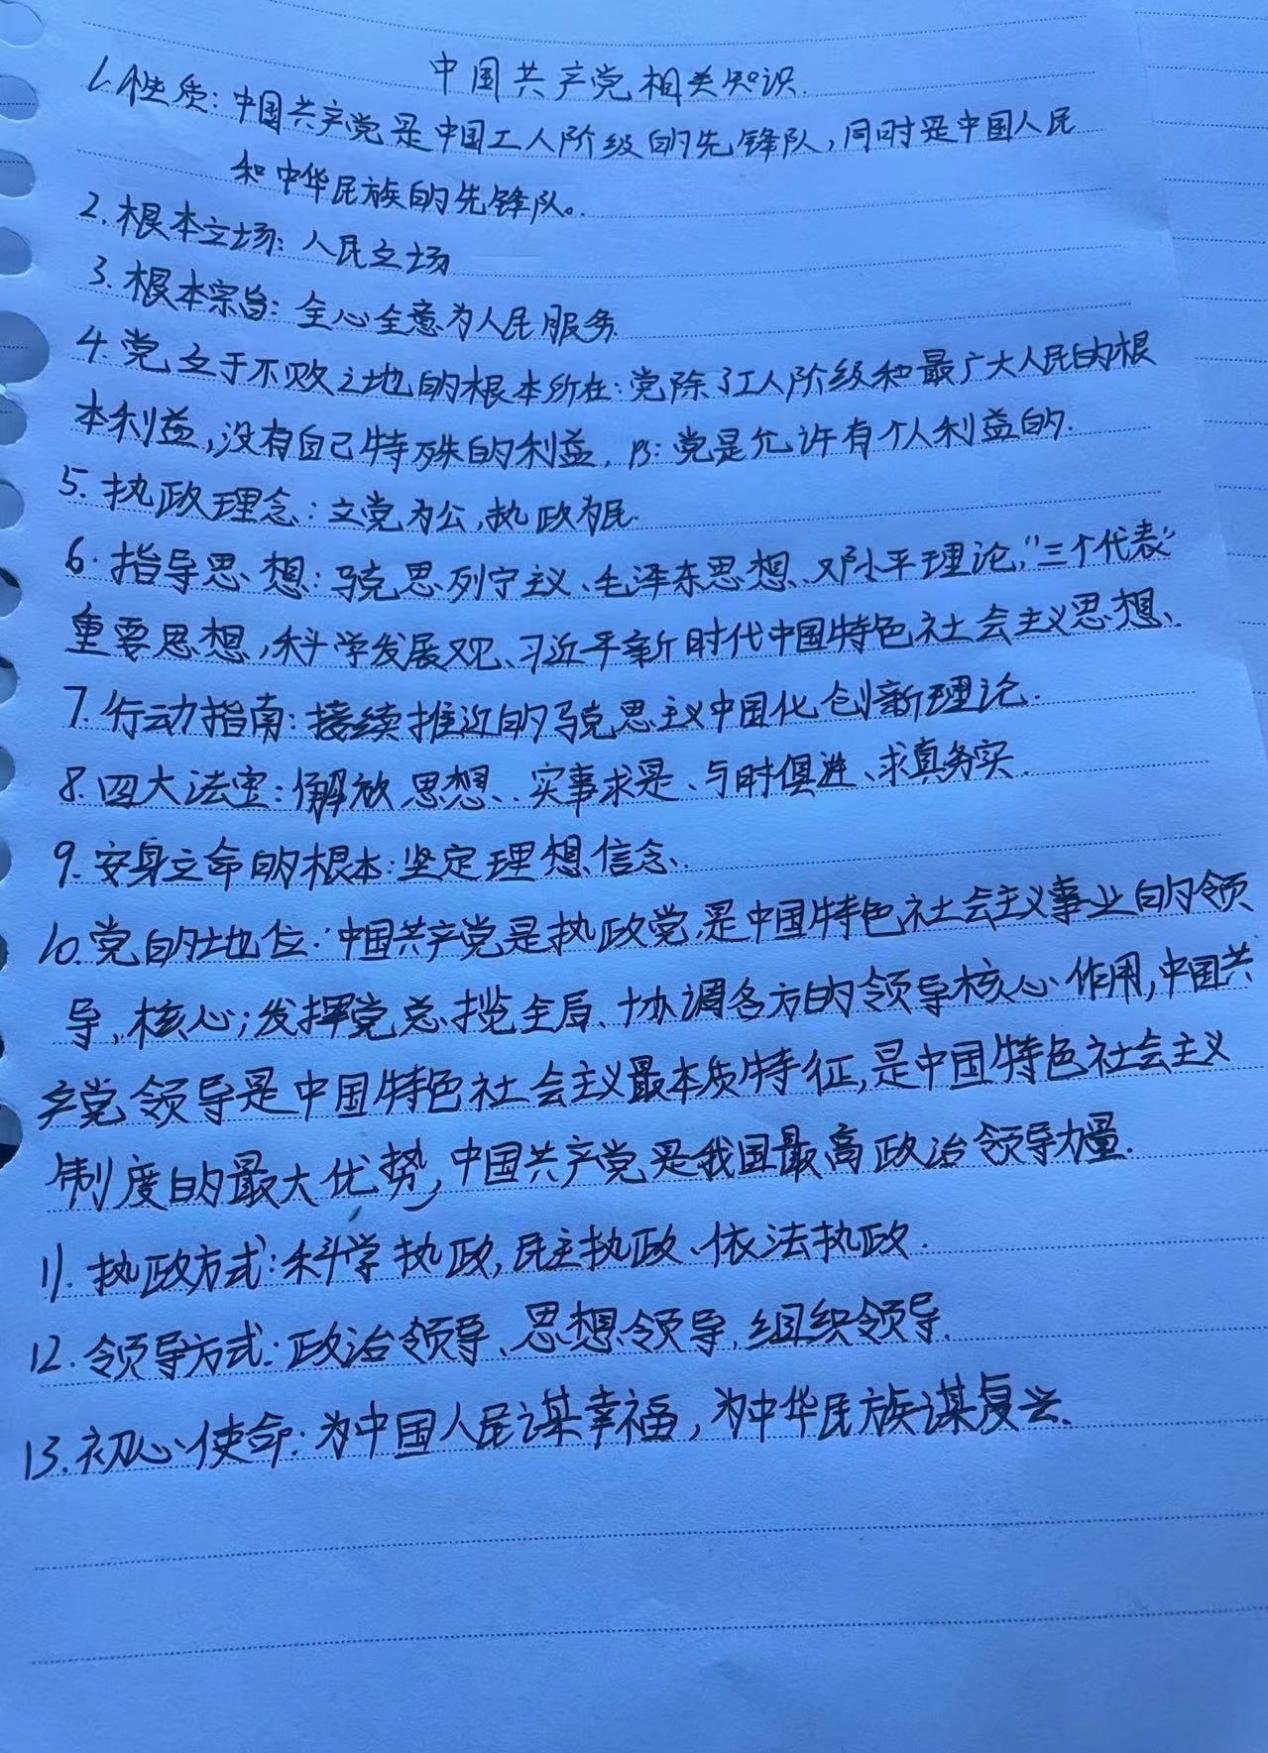 中国共产党相关知识.
1.性质:中国共产党是中国工人阶级的先锋队,同时是中国人民
和中华民族的先锋队。
2.根本立场:人民立场
3.根本宗旨:全心全意为人民服务.
4.党立于不败之地的根本所在:党除了工人阶级和最广大人民的根
本利益,没有自己特殊的利益. B:党是允许有个人利益的.
5.执政理念:立党为公,执政为民.
6.指导思想:马克思列宁主义、毛泽东思想、邓小平理论,"三个代表"
重要思想,科学发展观、习近平新时代中国特色社会主义思想、
7.行动指南:接续推近的马克思主义中国化创新理论.
8.四大法宝:解放思想、实事求是、与时俱进、求真务实.
9.安身立命的根本:坚定理想信念、
10.党的地位:中国共产党是执政党,是中国特色社会主义事业的领
导,核心;发挥党总揽全局、协调各方的领导核心作用,中国共
产党领导是中国特色社会主义最本质特征,是中国特色社会主义
制度的最大优势,中国共产党是我国最高政治领导力量.
11.执政方式:科学执政,民主执政、依法执政.
12.领导方式:政治领导、思想领导,组织领导.
13.初心使命:为中国人民谋幸福,为中华民族谋复兴.